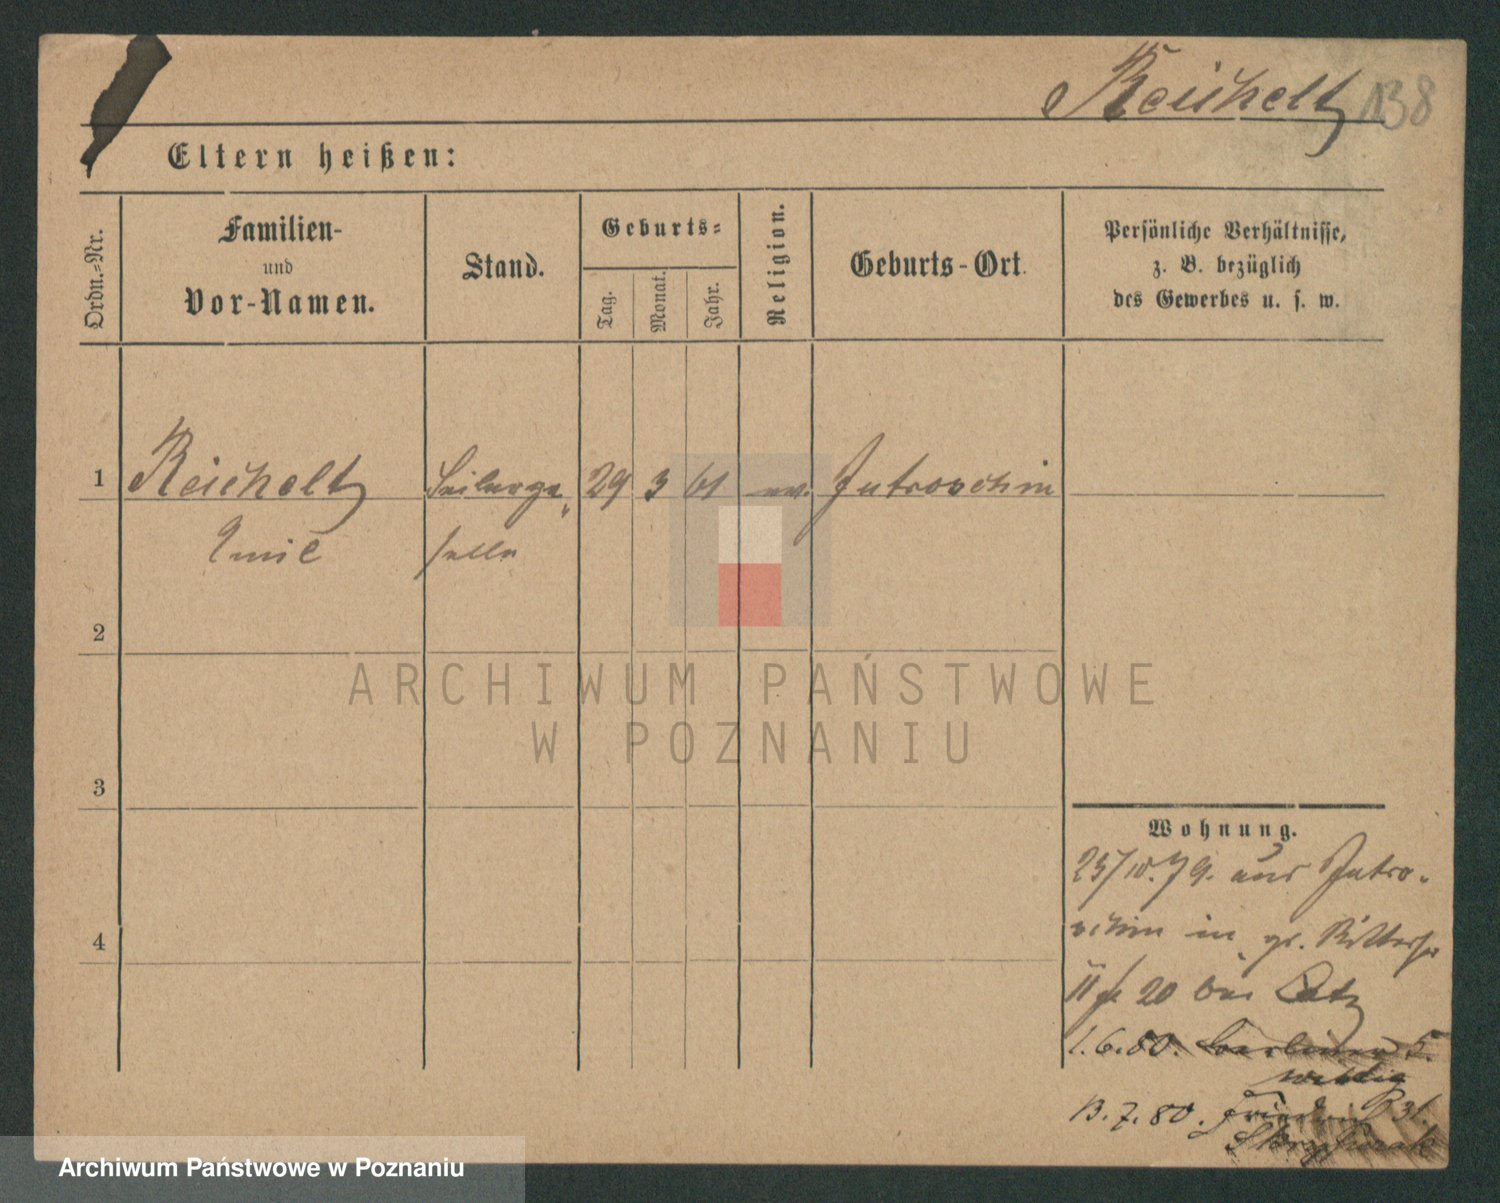 Reichelt 138
Eltern heißen:
Ordn.-Nr.
Familien-
und
Vor-Namen.
Stand.
Geburts-
Tag.
Monat.
Jahr.
Religion.
Geburts-Ort.
Persönliche Verhältnisse,
z. B. bezüglich
des Gewerbes u. s. w.
1 Reichelt Seilerge- 29 3 61 ev. Jutroschin
Emil selle
2
3
4
Wohnung.
25/10.79. aus Jutro-
schin in gr. Ritterstr
20 bei
1.6.80. Berliner 5.
13.7.80. Friedrich 31.
ARCHIWUM PAŃSTWOWE
W POZNANIU
Archiwum Państwowe w Poznaniu